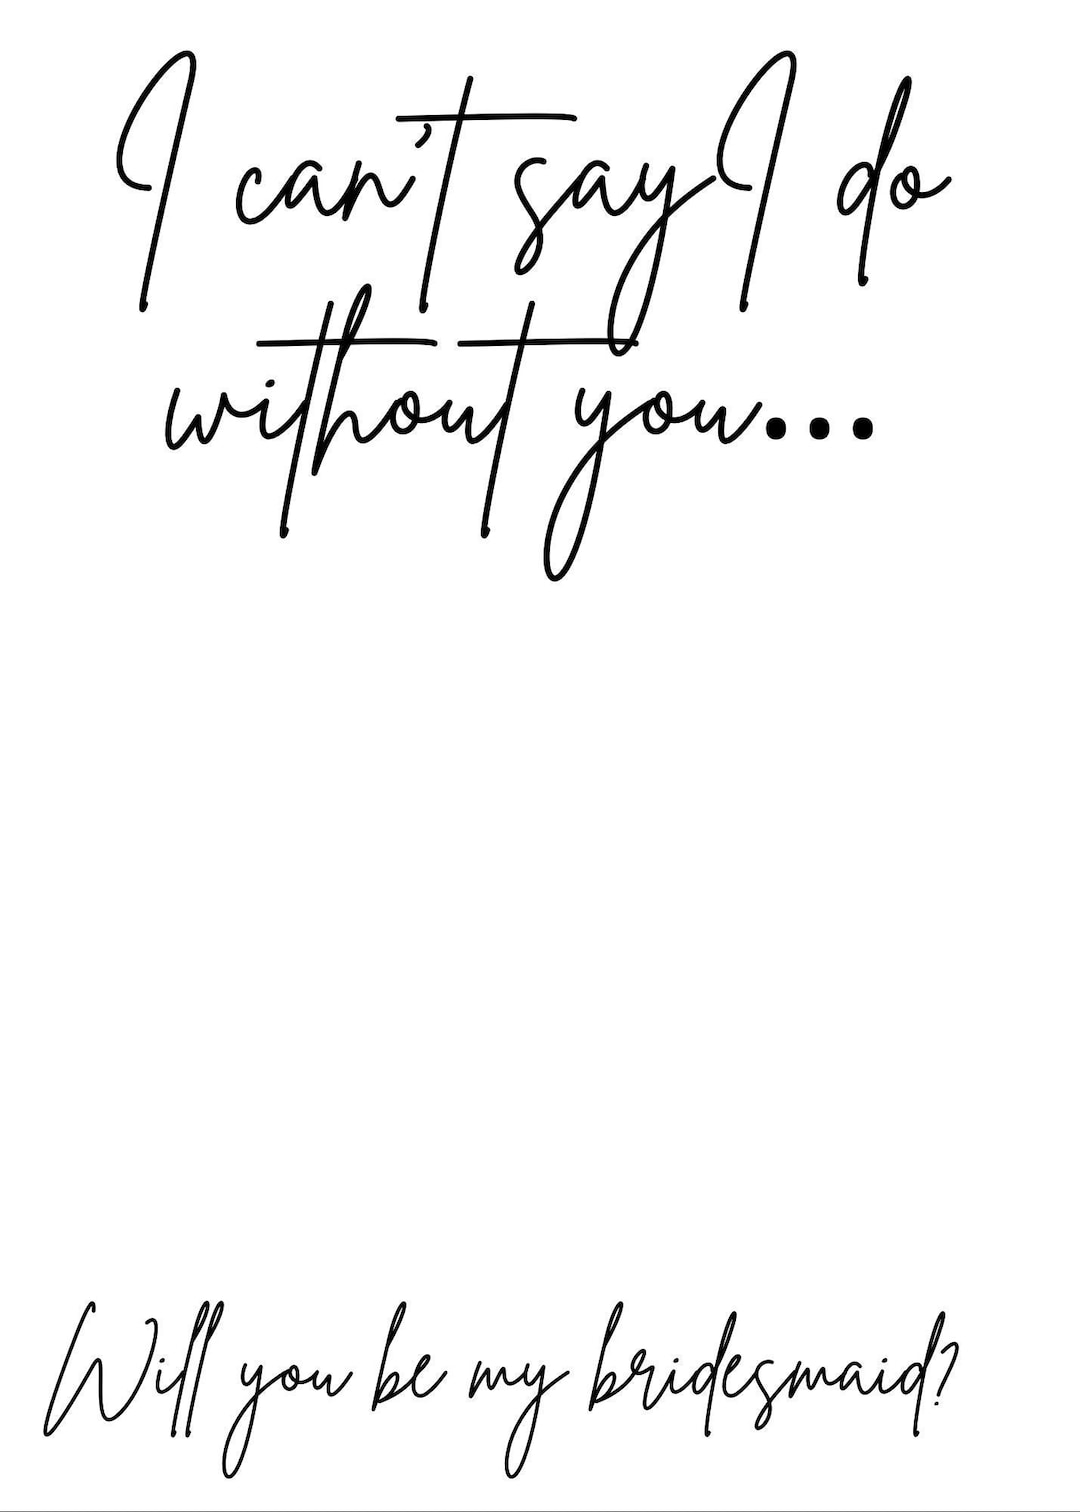 I can't say I do
without you...
Will you be my bridesmaid?